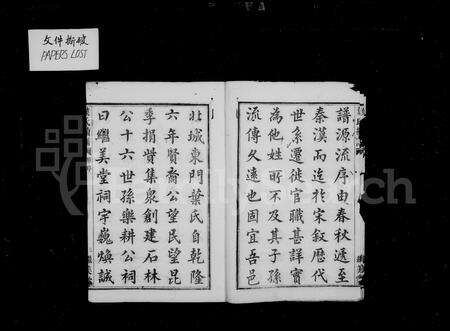 文件撕破
PAPERS LOST
譜源流序由春秋遞至
秦漢而迄於宋叙歷代
世系遷徙官職甚詳實
為他姓所不及其子孫
流傳久遠也固宜吾邑
北城東門葉氏自乾隆
六年賢裔公望民望昆
季捐貲集衆創建石林
公十六世孫樂耕公祠
曰繼美堂祠宇巍煥誠